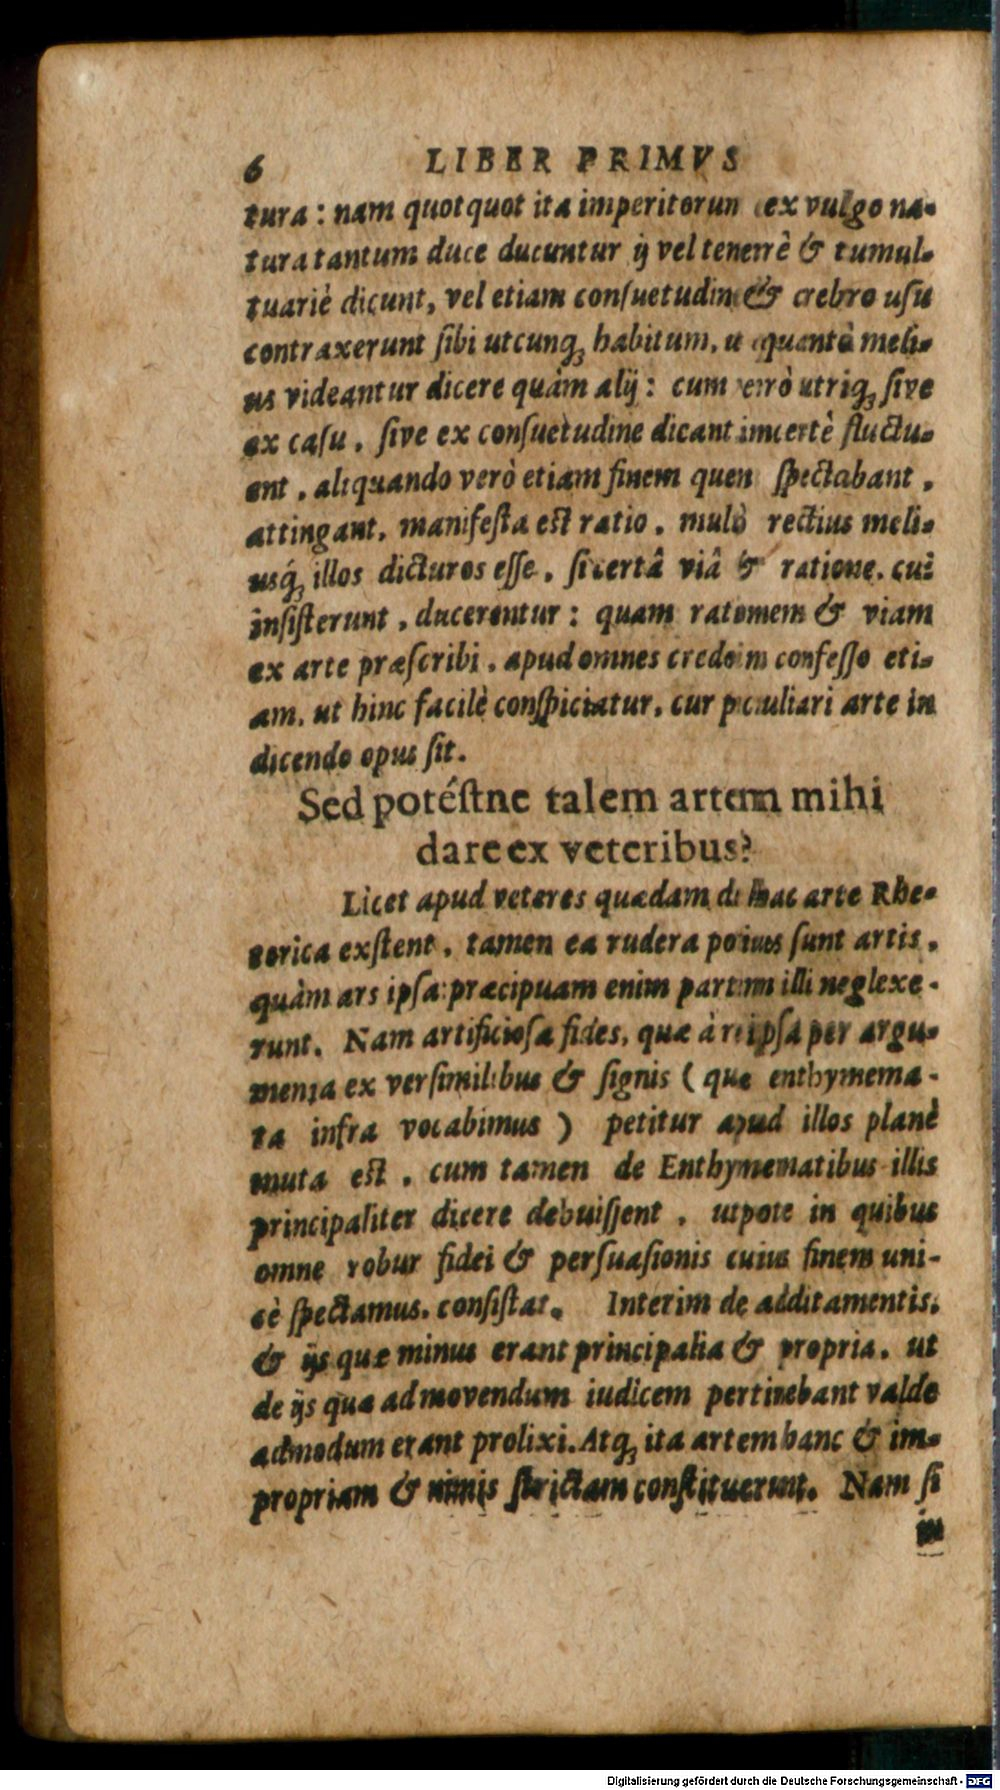 6 LIBER PRIMVS
tura: nam quotquot ita imperitorun ex vulgo na-
tura tantum duce ducuntur ij vel temerè & tumul-
tuariè dicunt, vel etiam consuetudine & crebro usu
contraxerunt sibi utcunq; habitum, ut quantò meli-
us videantur dicere quàm alij: cum verò utriq; sive
ex casu, sive ex consuetudine dicant incertè fluctu-
ent, aliquando verò etiam finem quem spectabant,
attingant, manifesta est ratio, multò rectius meli-
usq́; illos dicturos esse, si certâ viâ & ratione, cui
insisterunt, ducerentur: quam rationem & viam
ex arte præscribi, apud omnes credo in confesso eti-
am, ut hinc facilè conspiciatur, cur peculiari arte in
dicendo opus sit.
Sed potéstne talem artem mihi
dare ex veteribus?
Licet apud veteres quædam de hac arte Rhe-
torica exstent, tamen ea rudera potius sunt artis,
quàm ars ipsa: præcipuam enim partem illi neglexe-
runt. Nam artificiosa fides, quæ à re ipsa per argu-
menta ex versimilibus & signis (quæ enthymema-
ta infra vocabimus) petitur apud illos planè
muta est, cum tamen de Enthymematibus illis
principaliter dicere debuissent, utpote in quibus
omne robur fidei & persuasionis cuius finem uni-
cè spectamus, consistat. Interim de additamentis,
& ijs quæ minus erant principalia & propria, ut
de ijs quæ ad movendum iudicem pertinebant valde
admodum erant prolixi. Atq; ita artem hanc & im-
propriam & nimis strictam constituerunt. Nam si
in
Digitalisierung gefördert durch die Deutsche Forschungsgemeinschaft - DFG